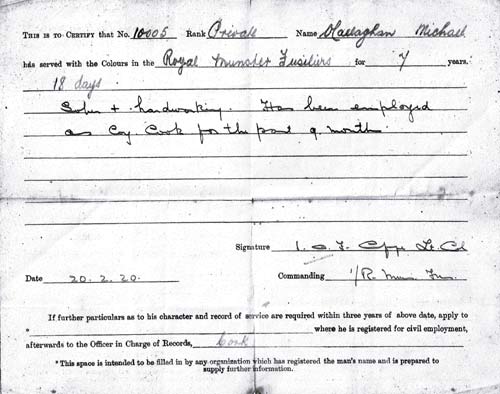 THIS IS TO CERTIFY that No. 10005 Rank Private Name O'Callaghan Michael
has served with the Colours in the Royal Munster Fusiliers for 7 years.
18 days
Sober + hardworking. Has been employed
as Coy Cook for the past 9 months.
Signature Lt. Col
Date 20.2.20. Commanding 1/R. Mun. Fus.
If further particulars as to his character and record of service are required within three years of above date, apply to
* where he is registered for civil employment,
afterwards to the Officer in Charge of Records, Cork
* This space is intended to be filled in by any organization which has registered the man's name and is prepared to
supply further information.